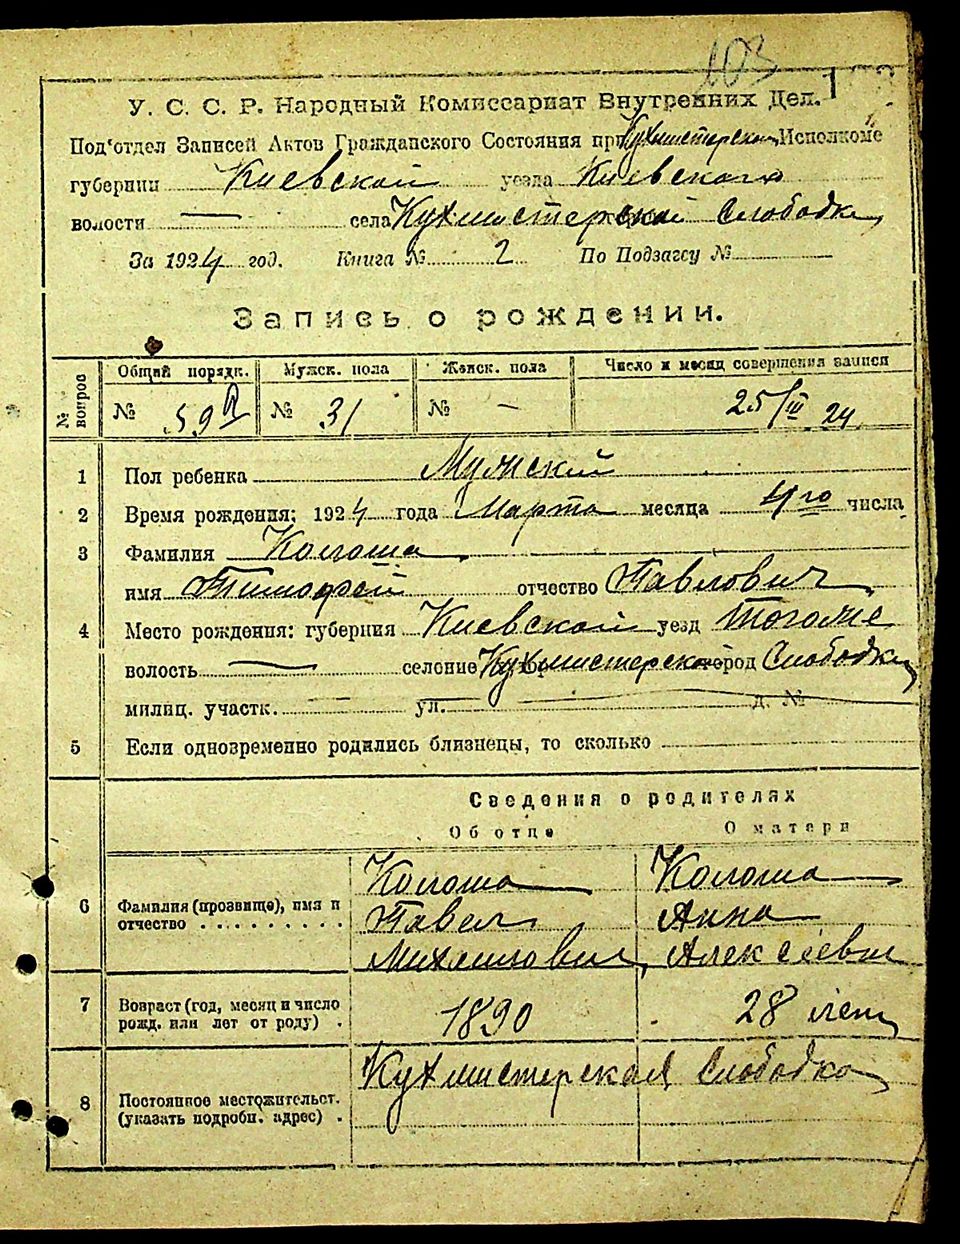 103
У. С. С. Р. Народный Комиссариат Внутренних Дел.
Под'отдел Записей Актов Гражданского Состояния при Кухмистерском Исполкоме
губернии Киевской уезда Киевского
волости — села Кухмистерской Слободки
За 1924 год. Книга № 2 По Подзагсу №
Запись о рождении.
№ вопров
Общий порядк. Мужск. пола Женск. пола Число и месяц совершения записи
№ 59 № 31 № - 25/III 24
1 Пол ребенка Мужской
2 Время рождения: 1924 года Марта месяца 4го числа
3 Фамилия Колоша
имя Тимофей отчество Павлович
4 Место рождения: губерния Киевской уезд Тогоже
волость — селение Кухмистерской город Слободки
милиц. участк. — ул. — д. №
5 Если одновременно родились близнецы, то сколько
Сведения о родителях
Об отце О матери
Колоша Колоша
6 Фамилия (прозвище), имя и отчество Павел Анна
Михайлович Алексеевна
7 Возраст (год, месяц и число рожд. или лет от роду) 1890 28 лет
Кухмистерская Слободка
8 Постоянное местожительст. (указать подробн. адрес)